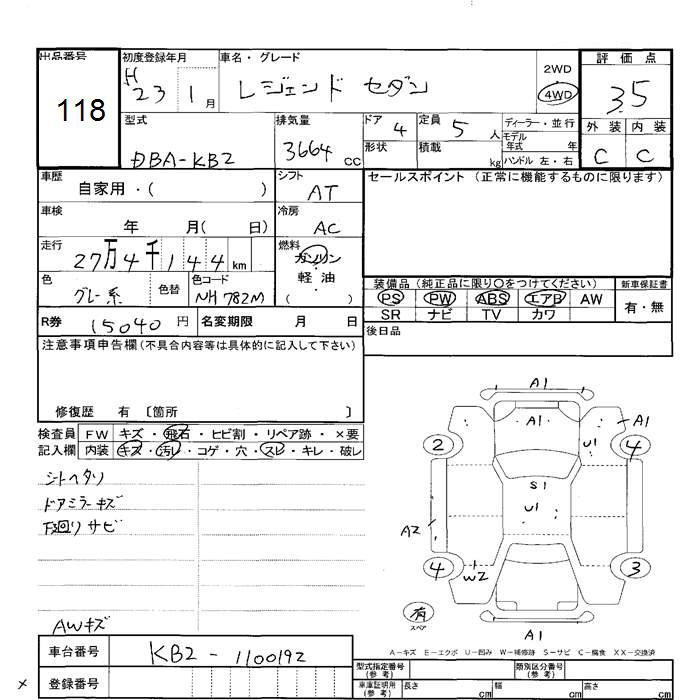 出品番号 初度登録年月 車名・グレード 評価点
118 H23 1月 レジェンド セダン 2WD 4WD 3.5
型式 排気量 ドア 4 定員 5人 ディーラー・並行 外装 内装
DBA-KB2 3664 CC 形状 積載 kg モデル年式 年 C C
ハンドル 左・右
車歴 自家用・( ) シフト AT セールスポイント (正常に機能するものに限ります)
車検 年 月( 日) 冷房 AC
走行 27万4千144 km 燃料 ガソリン
軽油
( )
色 グレー系 色替 色コード NH782M 装備品 (純正品に限り○をつけてください) 新車保証書
PS PW ABS エアB AW 有・無
R券 15040 円 名変期限 月 日 SR ナビ TV カワ
後日品
注意事項申告欄 (不具合内容等は具体的に記入して下さい)
修復歴 有 〔箇所 〕
検査員 FW キズ・飛石・ヒビ割・リペア跡・×要
記入欄 内装 キズ・汚レ・コゲ・穴・スレ・キレ・破レ
シートヘタリ
ドアミラーキズ
下廻りサビ
AWキズ
A1
A1
A1
2
U1
4
S1
U1
A2
4
W2
3
有
スペア
A1
A-キズ E-エクボ U-凹み W-補修跡 S-サビ C-腐食 XX-交換済
車台番号 KB2-1100192
× 登録番号
型式指定番号 (参考) 類別区分番号 (参考)
車庫証明用 (参考) 長さ cm 幅 cm 高さ cm